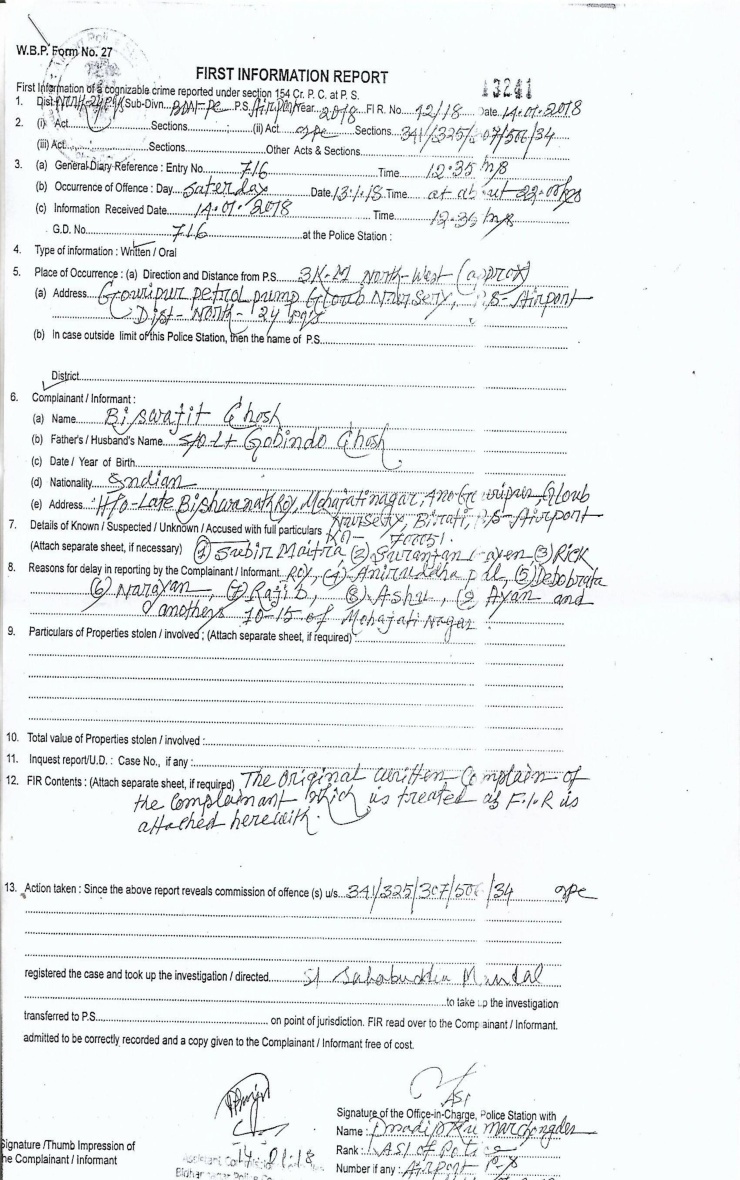 W.B.P. Form No. 27
FIRST INFORMATION REPORT
13241
First Information of a cognizable crime reported under section 154 Cr. P. C. at P. S.
1. Dist. Sub-Divn. P.S. Airport Year 2018 F I R. No. 42/18 Date 14.01.2018
2. (i) Act Sections (ii) Act Sections 341/325/307/506/34
(iii) Act Sections Other Acts & Sections
3. (a) General Diary Reference : Entry No. 716 Time 12:35 hrs
(b) Occurrence of Offence : Day Saterday Date 13.1.18 Time at about
(c) Information Received Date 14.01.2018 Time 12.35 hrs
G.D. No. 716 at the Police Station :
4. Type of information : Written / Oral
5. Place of Occurrence : (a) Direction and Distance from P.S. 3K.M North-West (approx)
(a) Address Gouripur petrol pump Gloub Nursery, P.S- Airport
Dist- North- 24 pgs
(b) In case outside limit of this Police Station, then the name of P.S.
District
6. Complainant / Informant :
(a) Name Biswajit Ghosh
(b) Father's / Husband's Name S/O Lt Gobindo Ghosh
(c) Date / Year of Birth
(d) Nationality Indian
(e) Address H/O-Late Bishwanath Roy, Mohajatinagar, Gouripur Gloub
Nursery, Birati, P.S- Airport
7. Details of Known / Suspected / Unknown / Accused with full particulars
(Attach separate sheet, if necessary) (1) Subir Maitra (2) (3) Rick
8. Reasons for delay in reporting by the Complainant / Informant. Roy, (4) Aniruddha (5) Debobrata
(6) Narayan, (7) Rajib, (8) Ashu, (9) Ayan and
others 10-15 of Mohajati Nagar
9. Particulars of Properties stolen / involved : (Attach separate sheet, if required)
10. Total value of Properties stolen / involved :
11. Inquest report/U.D. : Case No., if any :
12. FIR Contents : (Attach separate sheet, if required) The original written Complain of
the Complainant which is treated as F.I.R is
attached herewith.
13. Action taken : Since the above report reveals commission of offence (s) u/s. 341/325/307/506/34
registered the case and took up the investigation / directed SI Sahabuddin Mondal
to take up the investigation
transferred to P.S. on point of jurisdiction. FIR read over to the Complainant / Informant.
admitted to be correctly recorded and a copy given to the Complainant / Informant free of cost.
ASI
Signature of the Office-in-Charge, Police Station with
Name :
Signature /Thumb Impression of
14.01.18
Rank : ASI of Police
the Complainant / Informant
Number if any : Airport P.S